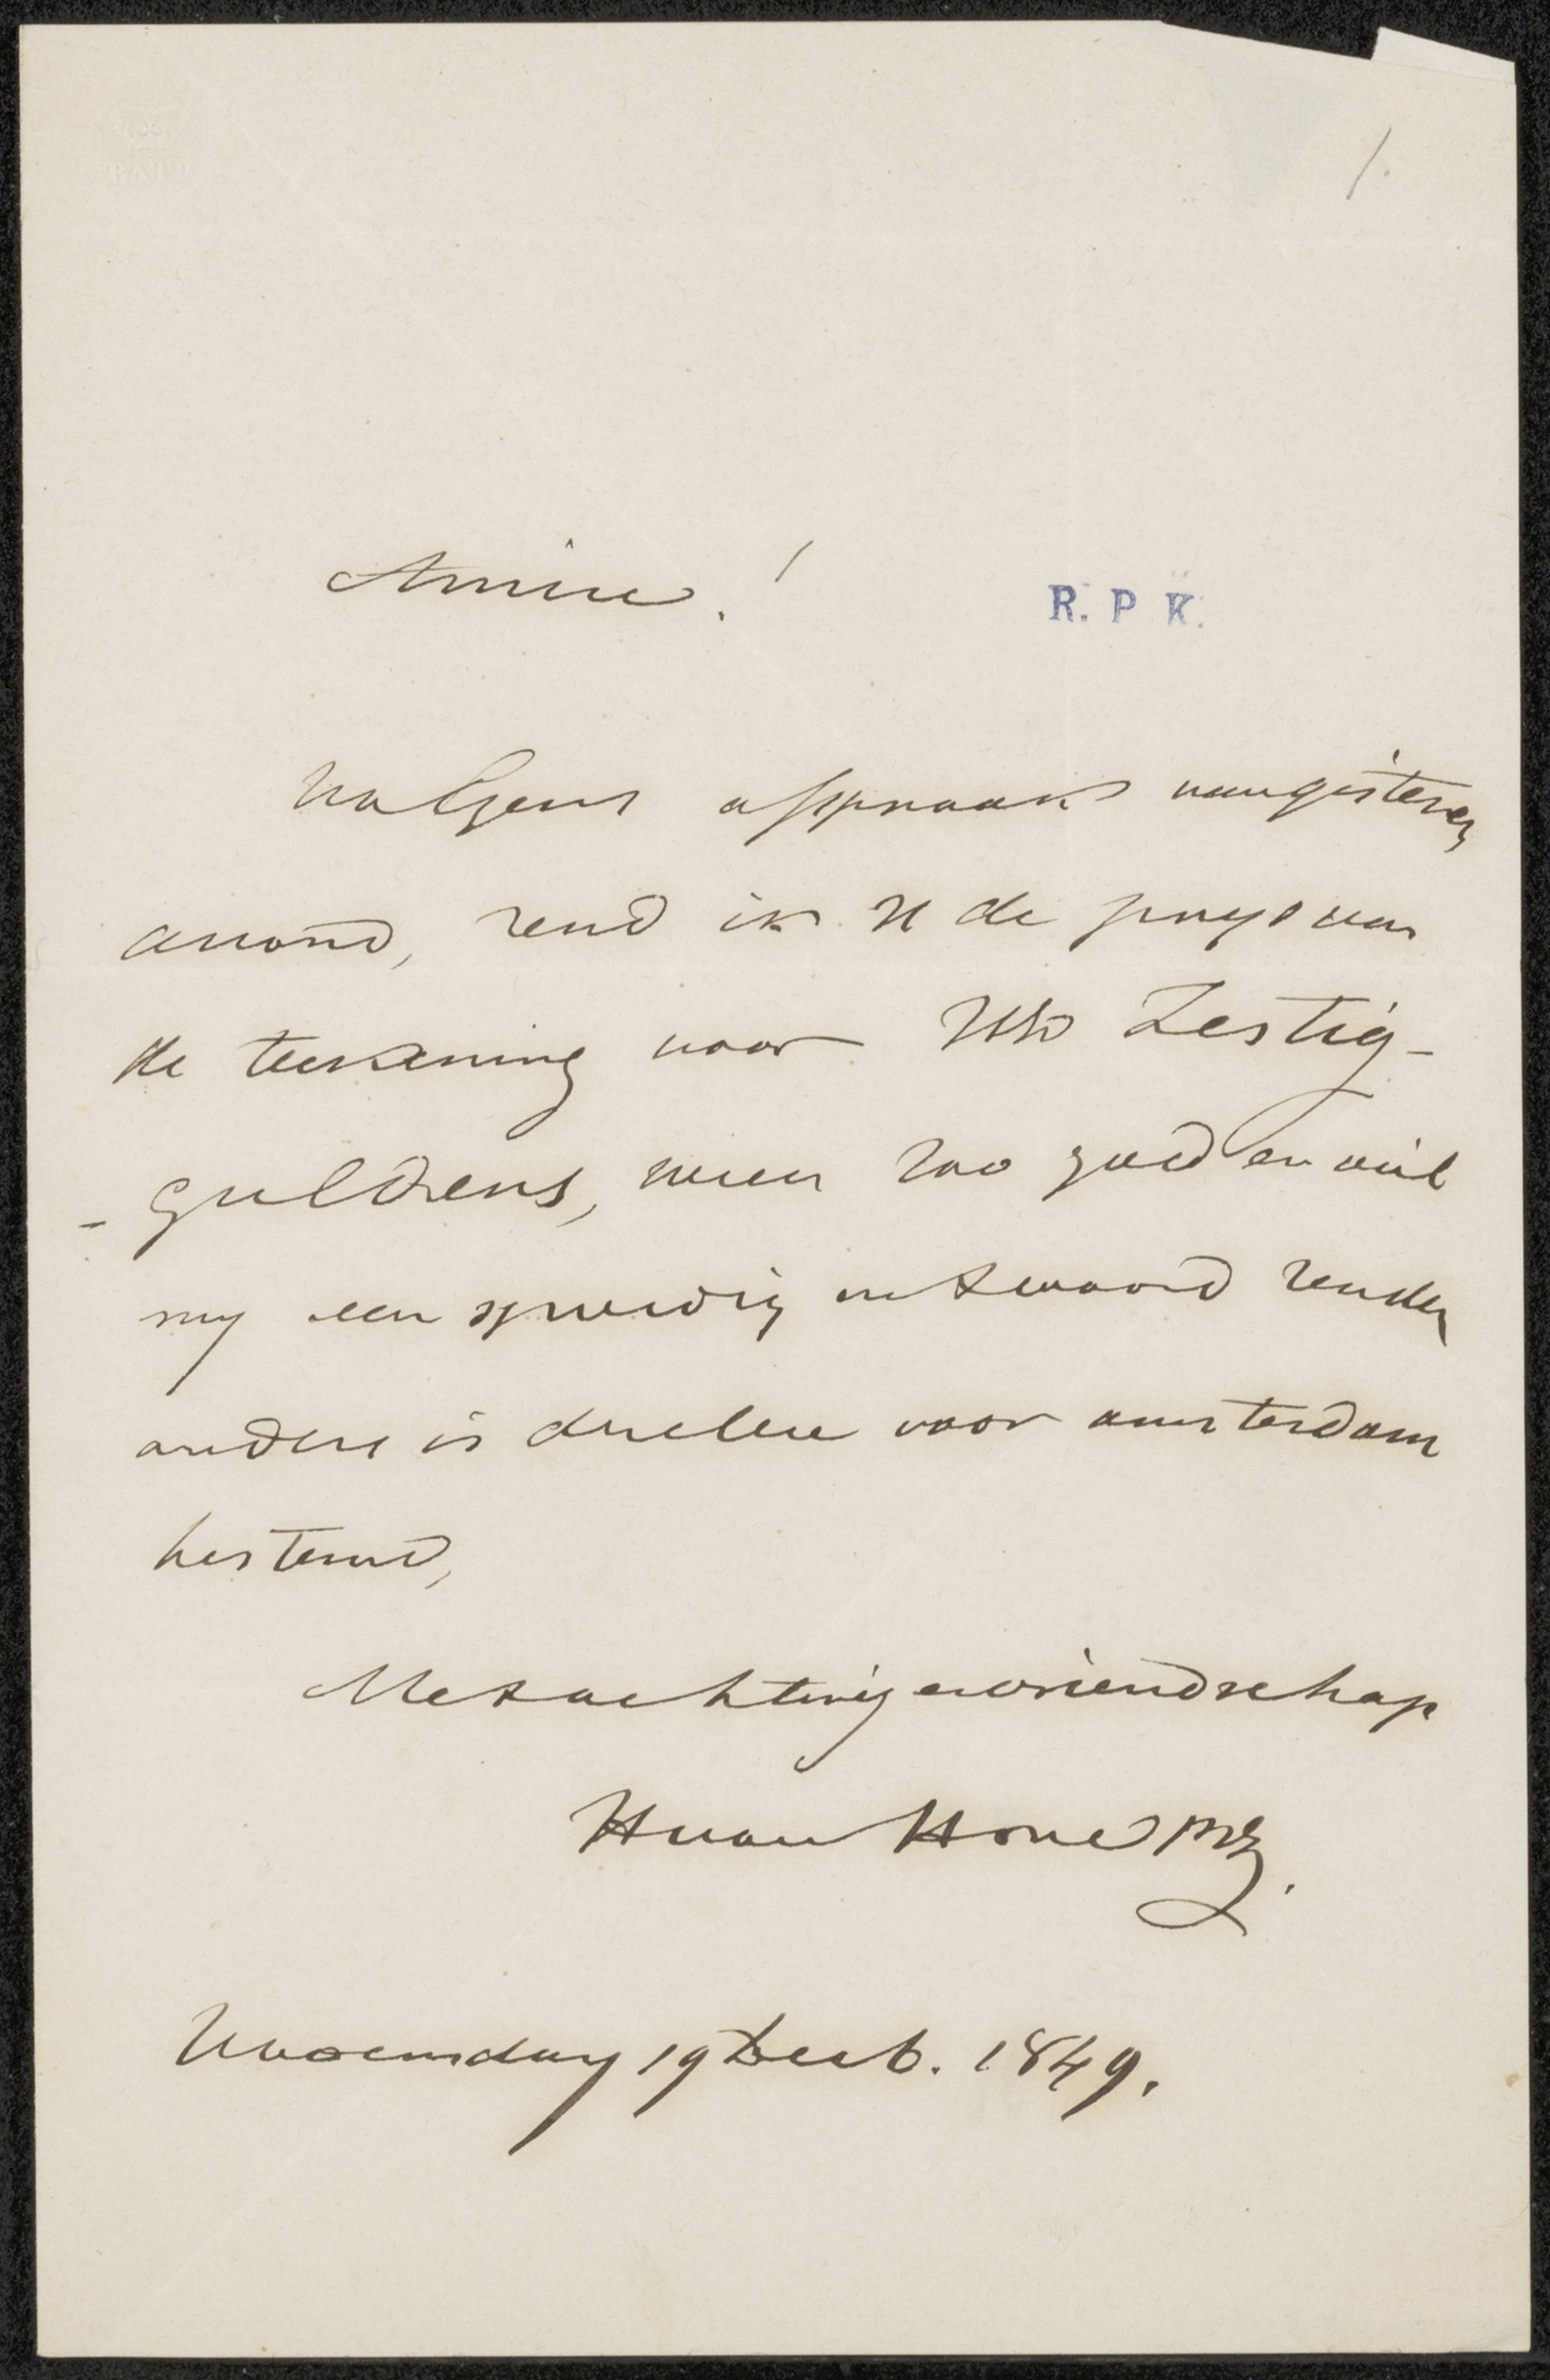 1.
Amice!
R. P. K.
Volgens afspraak van gisteren
avond, zend ik U de prys van
de teekening voor U Zestig-
-guldens, wees zoo goed en wil
my een spoedig antwoord zenden
anders is dezelve voor amsterdam
bestemd,
Met achting en vriendschap
H van Hove Bz.
Woensdag 19 Decb. 1849.